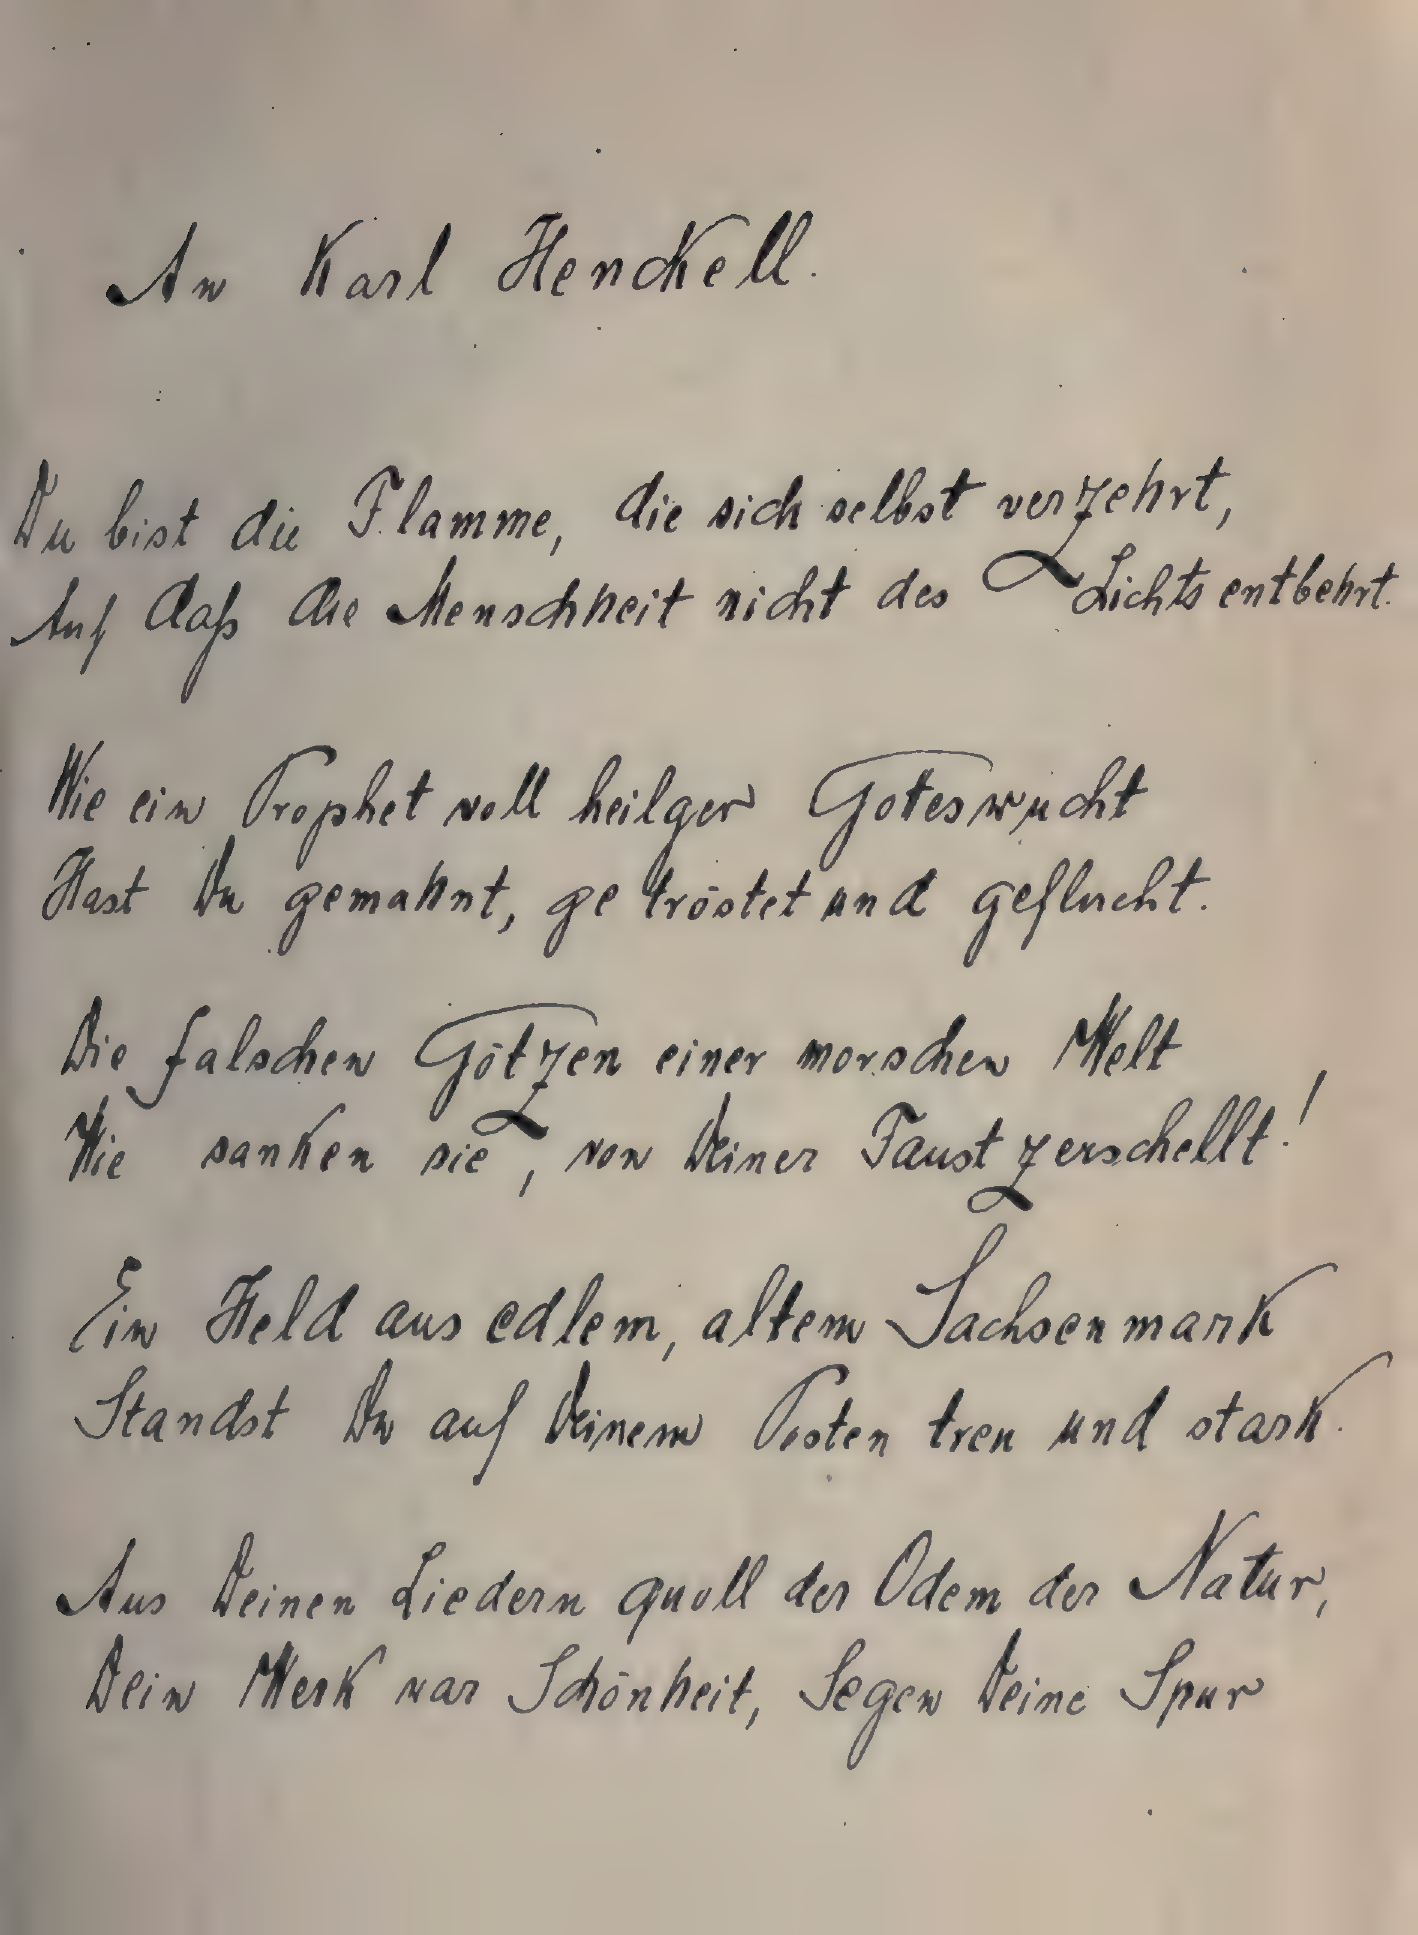 An Karl Henckell.
Du bist die Flamme, die sich selbst verzehrt,
Auf daß die Menschheit nicht des Lichts entbehrt.
Wie ein Prophet voll heilger Goteswucht
Hast Du gemahnt, getröstet und geflucht.
Die falschen Götzen einer morschen Welt
Wie sanken sie, von Deiner Faust zerschellt!
Ein Held aus edlem, altem Sachsenmark
Standst Du auf Deinem Posten treu und stark.
Aus Deinen Liedern quoll der Odem der Natur,
Dein Werk war Schönheit, Segen Deine Spur